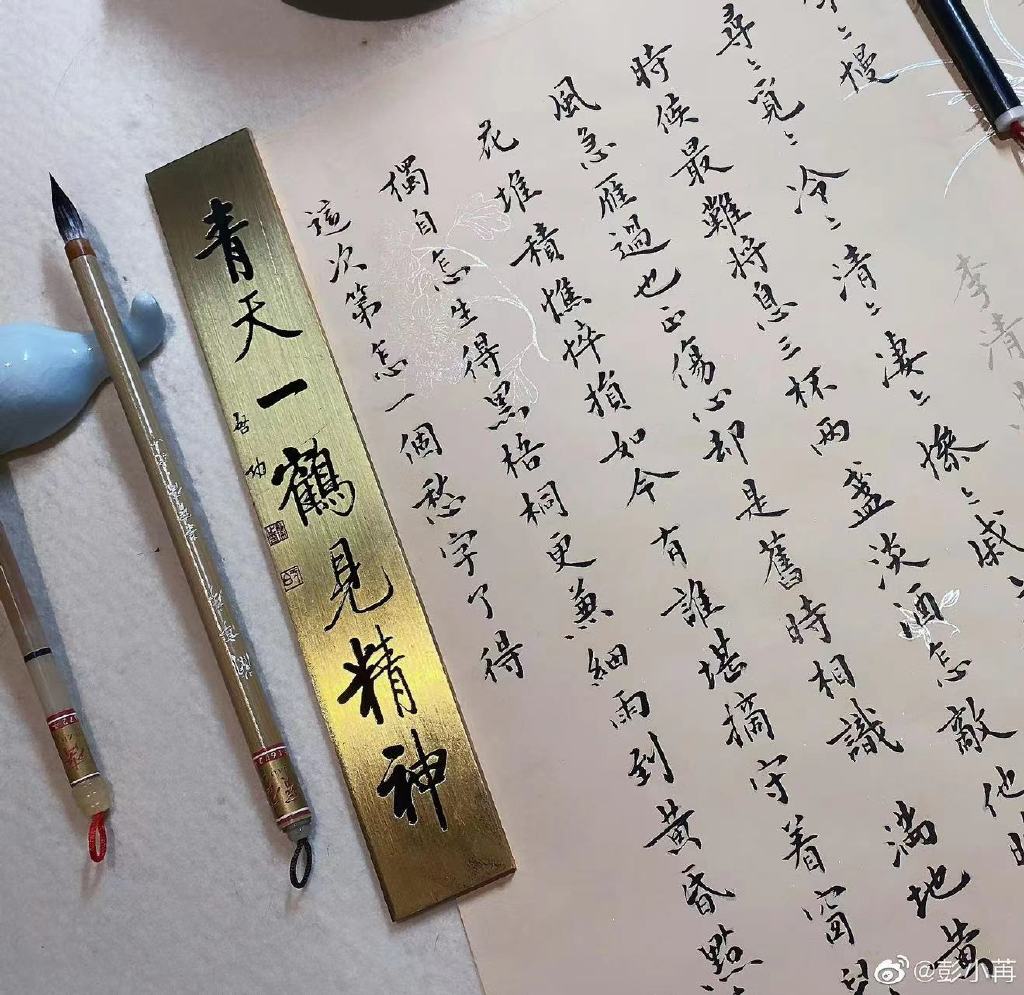 李清
〻慢
尋〻覓〻冷〻清〻凄〻惨〻戚〻
時候最難將息三杯兩盞淡酒怎敵他
風急雁過也正傷心却是舊時相識 滿地黄
花堆積憔悴損如今有誰堪摘守着窗兒
獨自怎生得黑梧桐更兼細雨到黄昏點
這次第怎一個愁字了得
青天一鶴見精神
啓功
@彭小苒